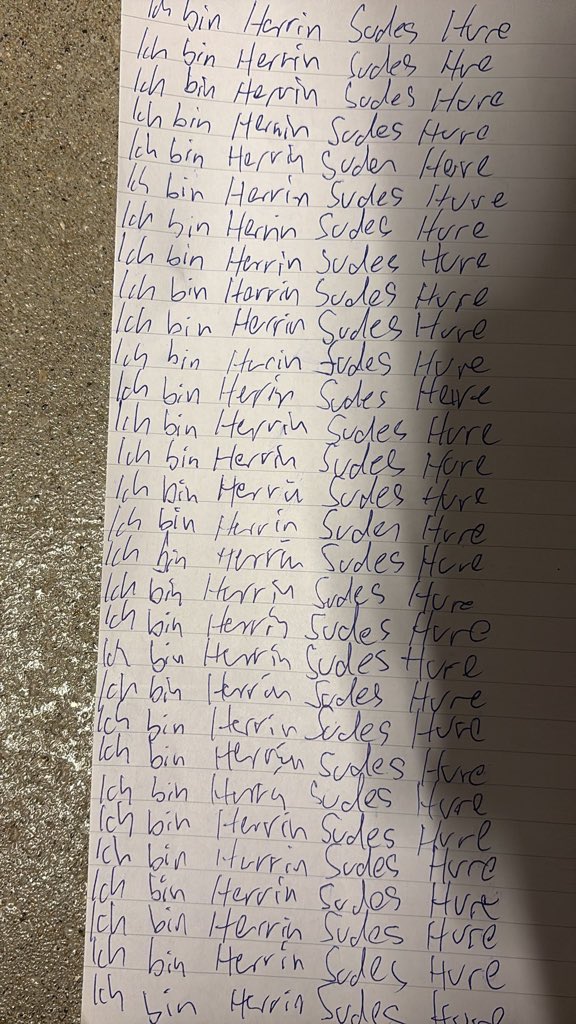 Ich bin Herrin Sudes Hure
Ich bin Herrin Sudes Hre
Ich bin Herrin Sudes Hure
Ich bin Hernin Sudes Hure
Ich bin Herrin Suden Heire
Ich bin Herrin Sudes Hure
Ich bin Herrin Sudes Hure
Ich bin Herrin Sudes Hure
Ich bin Harrin Sudes Hure
Ich bin Herrin Sudes Hure
Ich bin Hurin Sudes Hure
Ich bin Herin Sudes Heire
Ich bin Herrin Sudes Hure
Ich bin Herrin Sudes Hure
Ich bin Herrin Sudes Hure
Ich bin Herrin Suden Hure
Ich bin Herrin Sudes Hure
Ich bin Herrin Sudes Hure
Ich bin Herrin Sudes Hure
Ich bin Herrin Sudes Hure
Ich bin Herrin Sudes Hure
Ich bin Herrin Sudes Hure
Ich bin Herrin Sudes Hure
Ich bin Hurry Sudes Hure
Ich bin Herrin Sudes Hure
Ich bin Hurrin Sudes Hure
Ich bin Herrin Sudes Hure
Ich bin Herrin Sudes Hure
Ich bin Herrin Sudes Hure
Ich bin Herrin Sudes Hure